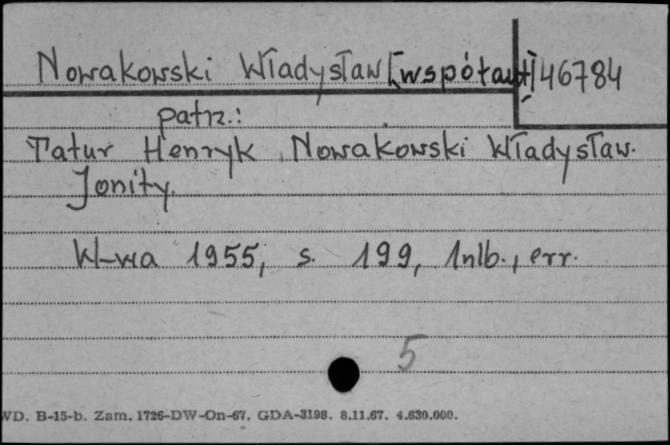 Nowakowski Władysław [współaut.] 46784
patrz:
Tatur Henryk, Nowakowski Władysław.
Jonity.
W-wa 1955, s. 199, 1nlb., err.
5
WD. B-15-b. Zam. 1726-DW-On-67. GDA-3198. 8.11.67. 4.630.000.